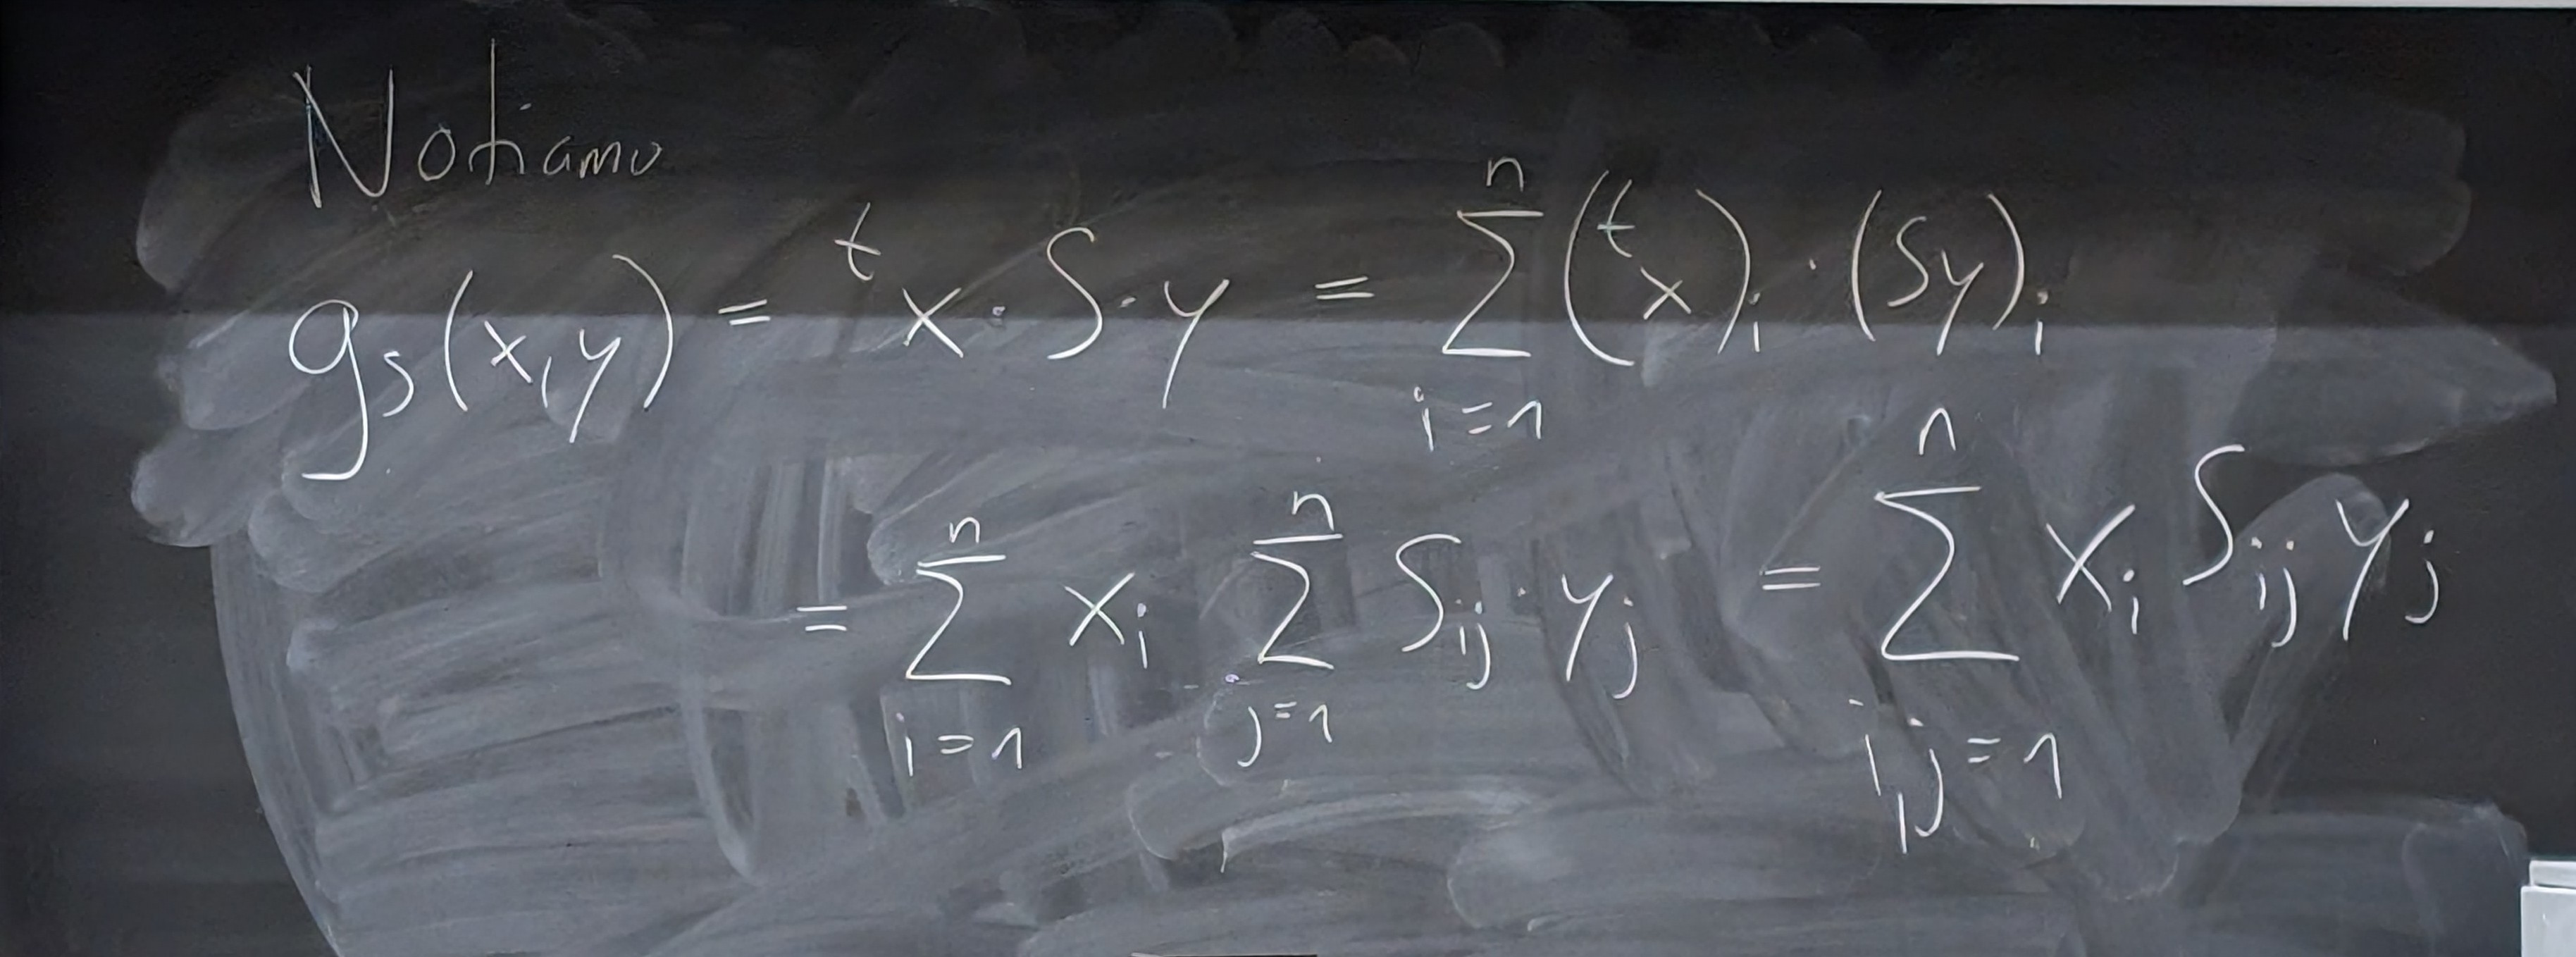 Notiamo
g_S(x,y) = ᵗx · S · y = ∑_{i=1}^{n} (ᵗx)_i · (Sy)_i
= ∑_{i=1}^{n} x_i ∑_{j=1}^{n} S_{ij} · y_j = ∑_{i,j=1}^{n} x_i S_{ij} y_j